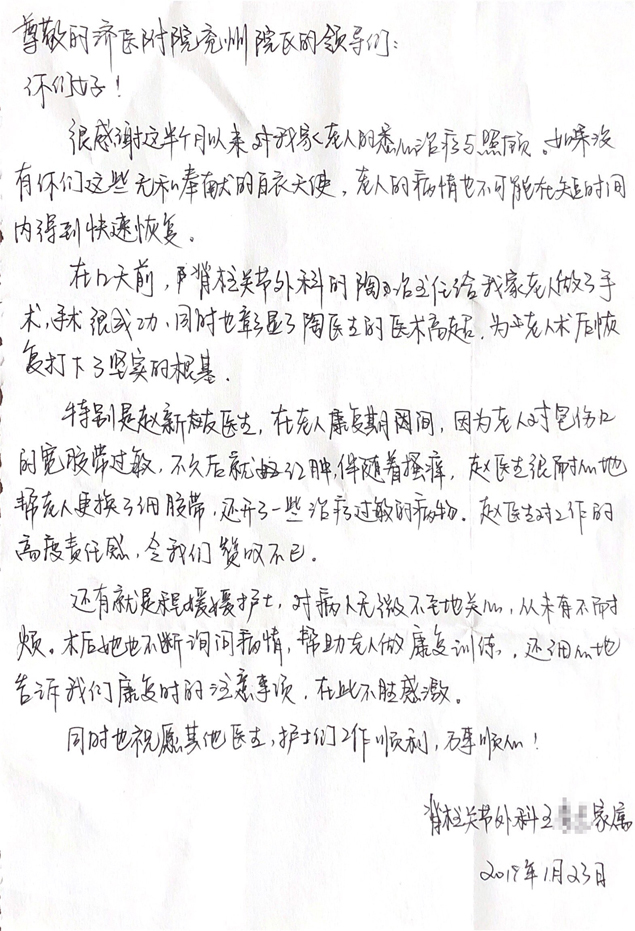 尊敬的济医附院兖州院区的领导们：
你们好！
很感谢这半个月以来对我家老人的悉心治疗与照顾。如果没
有你们这些无私奉献的白衣天使，老人的病情也不可能在短时间
内得到快速恢复。
在12天前，脊柱关节外科的陶治主任给我家老人做了手
术，手术很成功，同时也彰显了陶医生的医术高超，为老人术后恢
复打下了坚实的根基。
特别是赵新医生，在老人康复期间，因为老人对包伤口
的宽胶带过敏，不久后就红肿，伴随着搔痒，赵医生很耐心地
帮老人更换了细胶带，还开了一些治疗过敏的药物。赵医生对工作的
高度责任感，令我们赞叹不已。
还有就是程媛媛护士，对病人无微不至地关心，从未有不耐
烦。术后她也不断询问病情，帮助老人做康复训练，还细心地
告诉我们康复时的注意事项，在此不胜感激。
同时也祝愿其他医生，护士们工作顺利，万事顺心！
脊柱关节外科王 家属
2019年1月23日